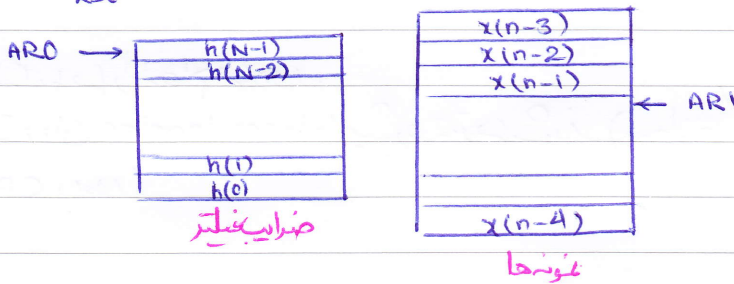 AR0 → h(N-1)
h(N-2)
h(1)
h(0)
ضرایب فیلتر
x(n-3)
x(n-2)
x(n-1)
← AR1
x(n-4)
نمونه‌ها